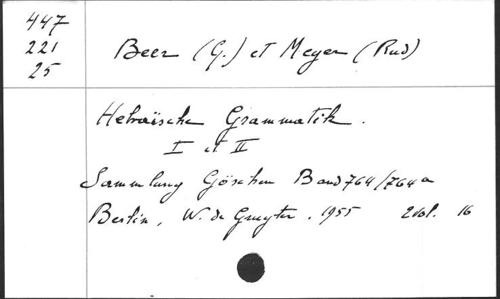 447
221
25
Beer (G.) et Meyer (Rud)
Hebraïsche Grammatik.
I et II
Sammlung Göschen Band 764/764a
Berlin, W. de Gruyter. 1955 2 vol. 16